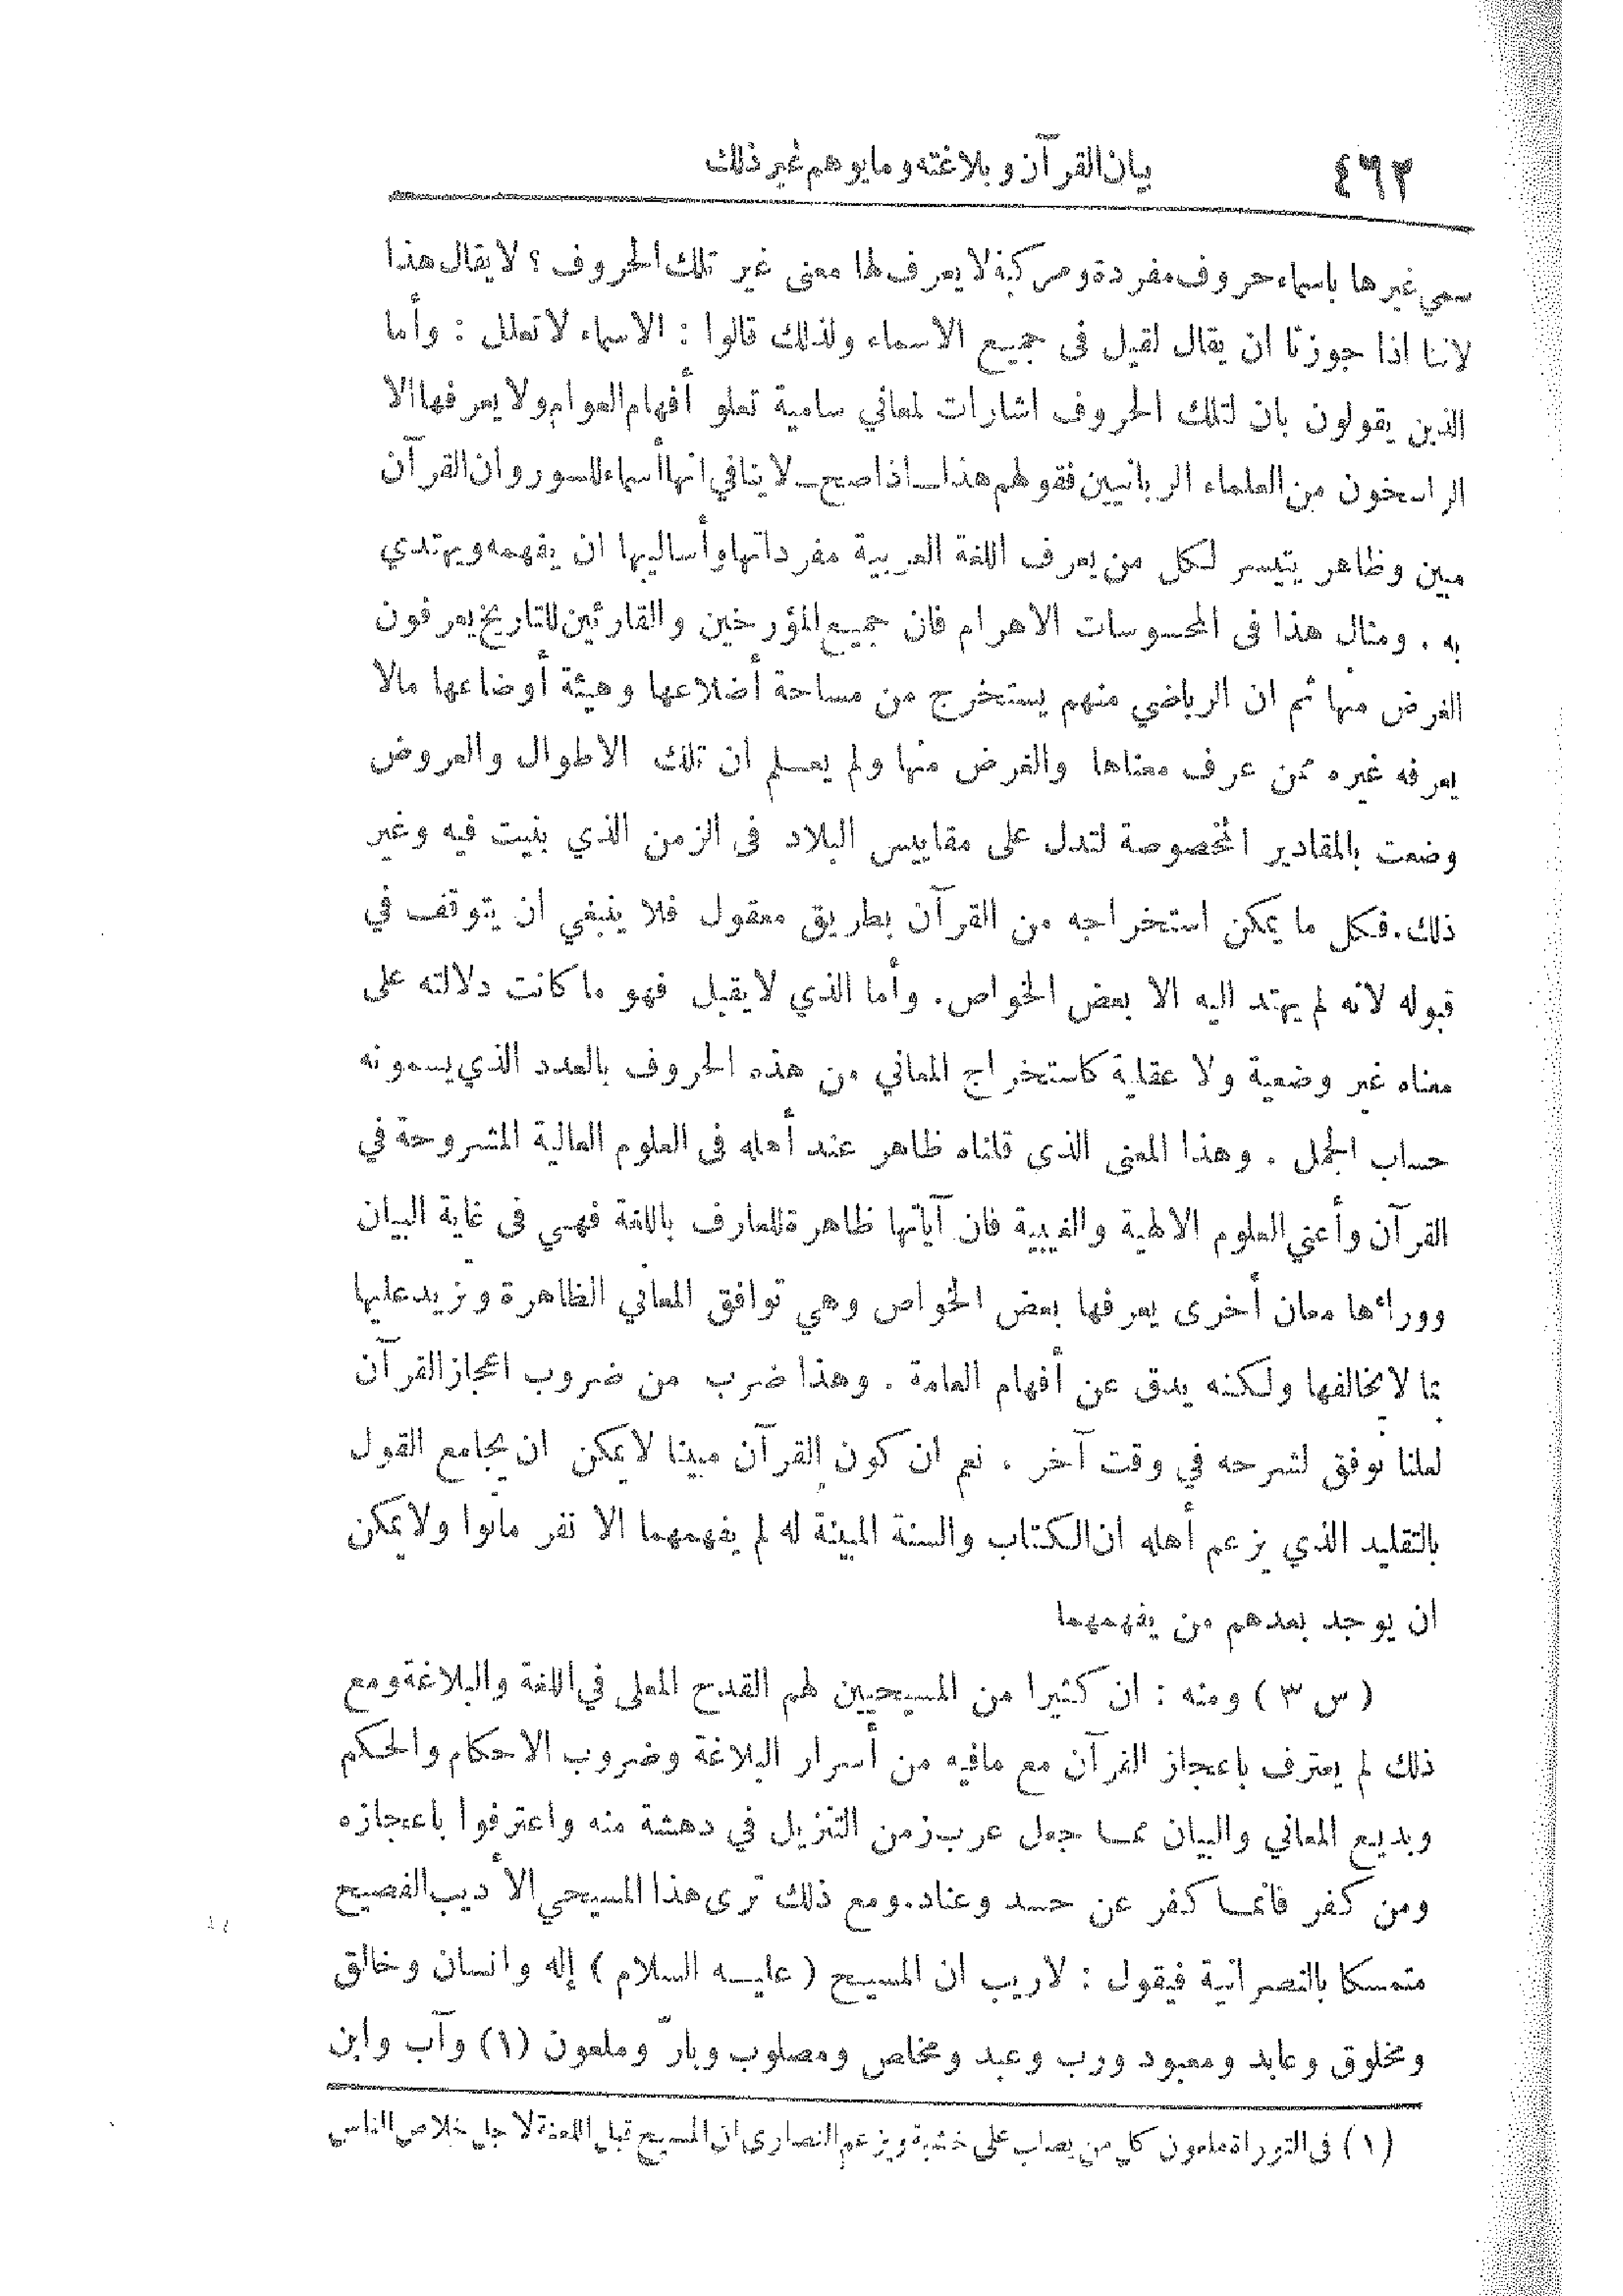 ٤٦٢ بيان القرآن وبلاغته وما يوهم غير ذلك
سمي غيرها باسماء حروف مفردة ومركبة لا يعرف لها معنى غير تلك الحروف ؟ لا يقال هذا
لاننا اذا جوزنا ان يقال لقيل فى جميع الاسماء ولذلك قالوا : الاسماء لا تعلل : وأما
الذين يقولون بان لتلك الحروف اشارات لمعاني سامية تعلو أفهام العوام ولا يعرفها الا
الراسخون من العلماء الربانيين فقولهم هذا ــ اذا صح ــ لا ينافي انها أسماء للسور وان القرآن
مبين وظاهر يتيسر لكل من يعرف اللغة العربية مفرداتها وأساليبها ان يفهمه ويهتدي
به . ومثال هذا فى المحسوسات الاهرام فان جميع المؤرخين والقارئين للتاريخ يعرفون
الغرض منها ثم ان الرياضي منهم يستخرج من مساحة أضلاعها وهيئة أوضاعها مالا
يعرفه غيره ممن عرف معناها والغرض منها ولم يعلم ان تلك الاطوال والعروض
وضعت بالمقادير المخصوصة لتدل على مقاييس البلاد فى الزمن الذي بنيت فيه وغير
ذلك . فكل ما يمكن استخراجه من القرآن بطريق معقول فلا ينبغي ان يتوقف في
قبوله لانه لم يهتد اليه الا بعض الخواص . وأما الذي لا يقبل فهو ما كانت دلالته على
معناه غير وضعية ولا عقلية كاستخراج المعاني من هذه الحروف بالعدد الذي يسمونه
حساب الجمل . وهذا المعنى الذى قلناه ظاهر عند أهله فى العلوم العالية المشروحة في
القرآن وأعني العلوم الالهية والغيبية فان آياتها ظاهرة للعارف باللغة فهي فى غاية البيان
ووراءها معان أخرى يعرفها بعض الخواص وهي توافق المعاني الظاهرة وتزيد عليها
بما لا يخالفها ولكنه يدق عن أفهام العامة . وهذا ضرب من ضروب اعجاز القرآن
لعلنا نوفق لشرحه في وقت آخر . نعم ان كون القرآن مبينا لا يمكن ان يجامع القول
بالتقليد الذي يزعم أهله ان الكتاب والسنة المبينة له لم يفهمهما الا نفر ماتوا ولا يمكن
ان يوجد بعدهم من يفهمهما
( س ٣ ) ومنه : ان كثيرا من المسيحيين لهم القدح المعلى في اللغة والبلاغة ومع
ذلك لم يعترف باعجاز القرآن مع مافيه من أسرار البلاغة وضروب الاحكام والحكم
وبديع المعاني والبيان مما جعل عرب زمن التنزيل في دهشة منه واعترفوا باعجازه
ومن كفر فانما كفر عن حسد وعناد . ومع ذلك ترى هذا المسيحي الأديب الفصيح
متمسكا بالنصرانية فيقول : لاريب ان المسيح ( عليه السلام ) إله وانسان وخالق
ومخلوق وعابد ومعبود ورب وعبد ومخلص ومصلوب وبارّ وملعون (١) وآب وابن
(١) فى التوراة ملعون كل من يصلب على خشبة ويزعم النصارى ان المسيح قبل اللعنة لاجل خلاص الناس